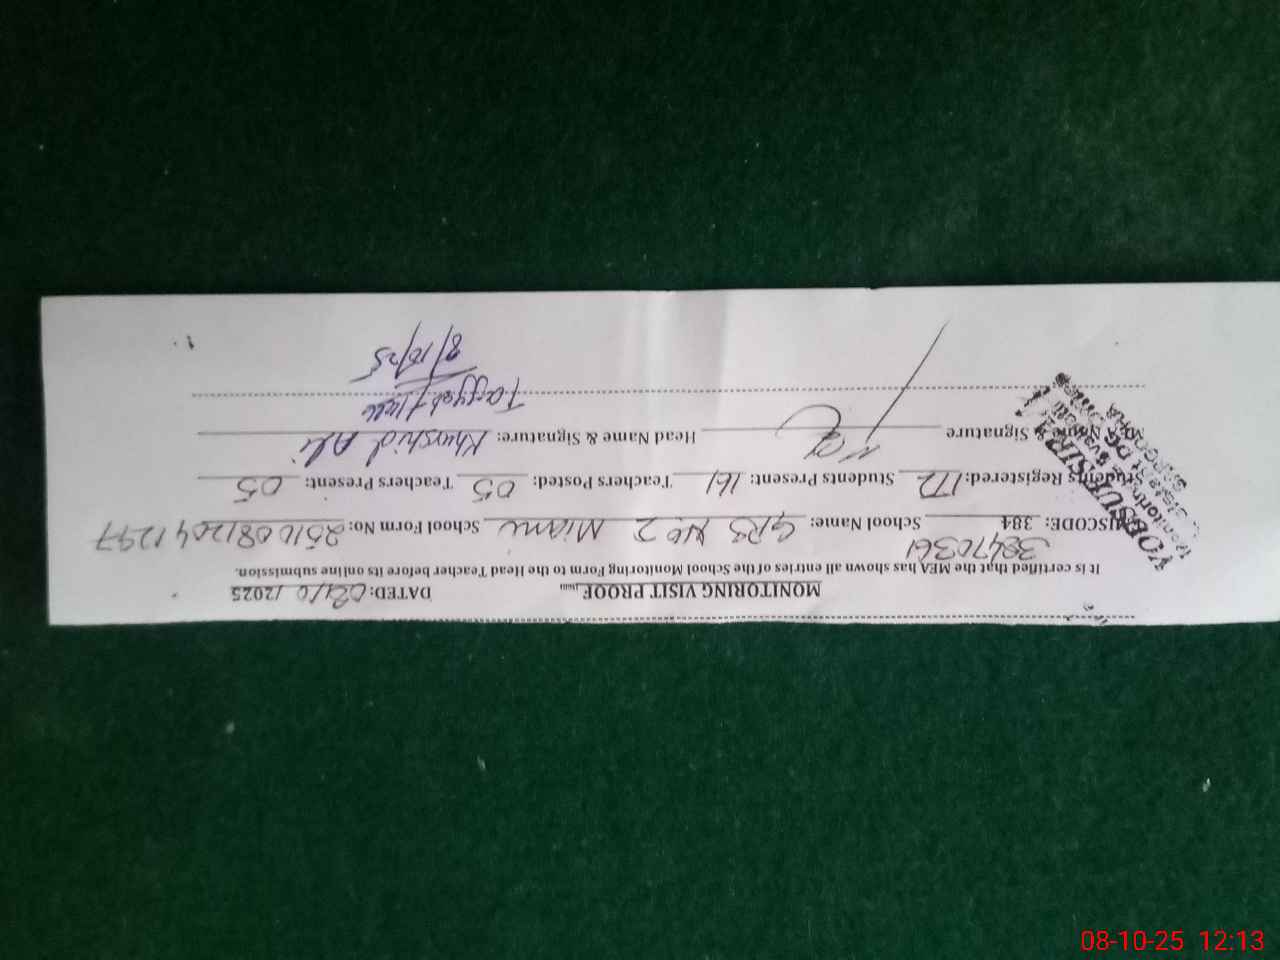 MONITORING VISIT PROOF DATED: 08/10/2025
It is certified that the MEA has shown all entries of the School Monitoring Form to the Head Teacher before its online submission.
38470361
EMISCODE: 384 School Name: GPS No 2 Miami School Form No: 2510081204 1297
Students Registered: 172 Students Present: 161 Teachers Posted: 05 Teachers Present: 05
Name Signature Head Name & Signature: Khurshid Ali
8/10/25
08-10-25 12:13